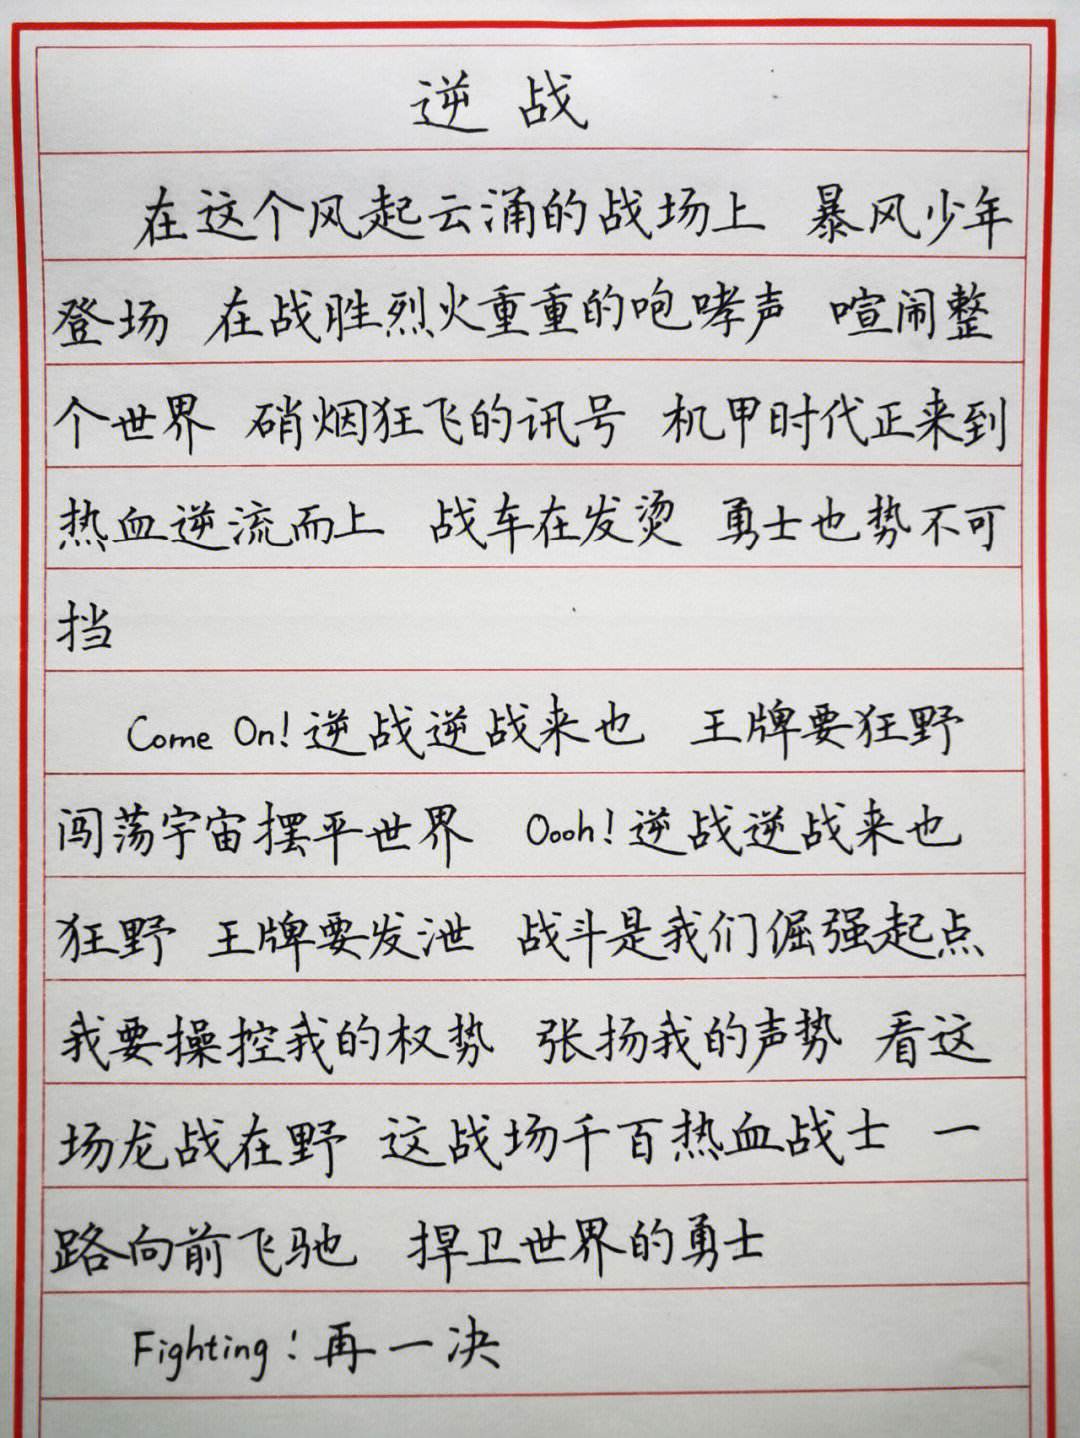 逆战
在这个风起云涌的战场上 暴风少年
登场 在战胜烈火重重的咆哮声 喧闹整
个世界 硝烟狂飞的讯号 机甲时代正来到
热血逆流而上 战车在发烫 勇士也势不可
挡
Come On!逆战逆战来也 王牌要狂野
闯荡宇宙摆平世界 Oooh!逆战逆战来也
狂野 王牌要发泄 战斗是我们倔强起点
我要操控我的权势 张扬我的声势 看这
场龙战在野 这战场千百热血战士 一
路向前飞驰 捍卫世界的勇士
Fighting!再一决